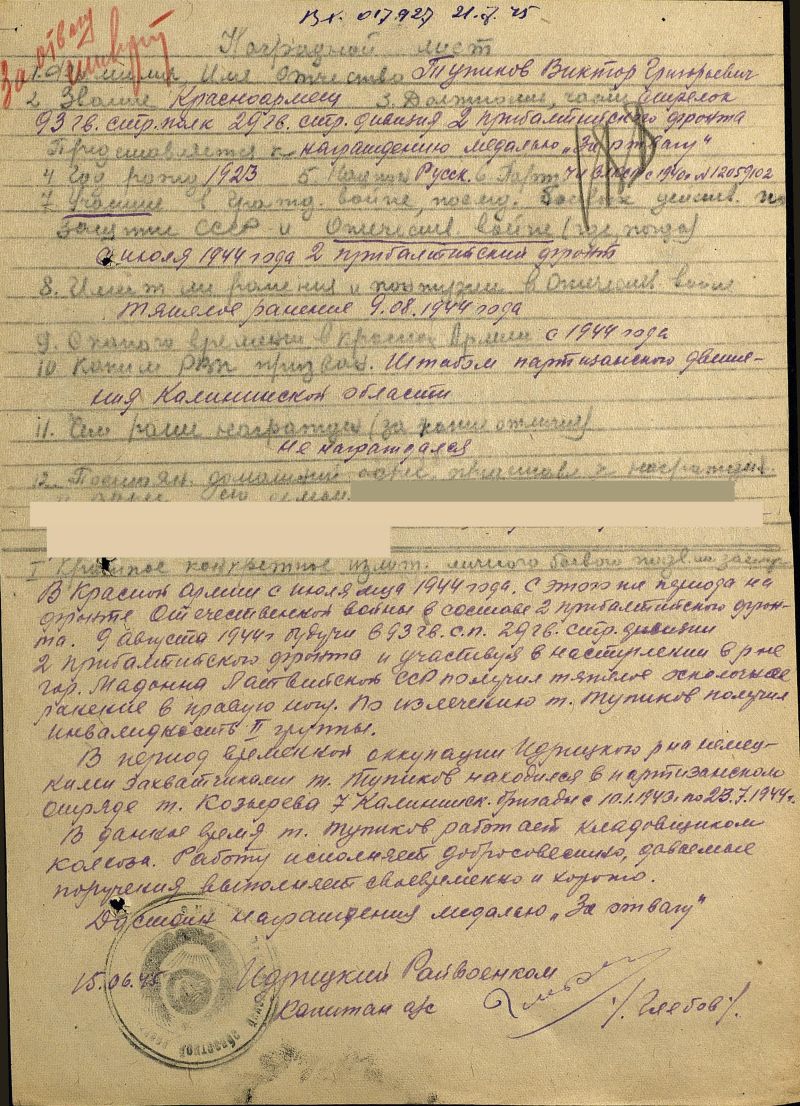 Вх. 017927 21.7.45
За отвагу
Наградной лист
1. Фамилия, Имя Отчество Тупиков Виктор Григорьевич
2. Звание Красноармеец 3. Должность, часть Стрелок
93 гв. стр. полк 29 гв. стр. дивизия 2 прибалтийского фронта
Представляется к награждению медалью „За отвагу"
4 Год рожд 1923 5. Национ Русск. 6. Парт чл ВЛКСМ с 1940г N 12059102
7. Участие в гражд. войне, послед. боевых действ. по
защите СССР и Отечествен. войне (где, когда)
С июля 1944 года 2 прибалтийский фронт
8. Имеет ли ранения и контузии в Отечеств войне
Тяжелое ранение 9.08.1944 года
9. С какого времени в Красной Армии с 1944 года
10. Каким РВК призван. Штабом партизанского движе-
ния Калининской области
11. Чем ранее награжден (за какие отличия)
не награждался
12. Постоян. домашний адрес представл. к награжден.
и адрес его семьи
I Краткое конкретное излож. личного боевого подвига
В Красной армии с июля м-ца 1944 года. С этого же периода на
фронте Отечественной войны в составе 2 прибалтийского фрон-
та. 9 августа 1944 г будучи в 93 гв. с.п. 29 гв. стр. дивизии
2 прибалтийского фронта и участвуя в наступлении в р-не
гор. Мадонна Латвийской ССР получил тяжелое осколочное
ранение в правую ногу. По излечению т. Тупиков получил
инвалидность II группы.
В период временной оккупации Идрицкого р-на немец-
кими захватчиками т. Тупиков находился в партизанском
отряде т. Козырева 7 Калининск. бригады с 10.1.1943г по 23.7.1944г.
В данное время т. Тупиков работает кладовщиком
колхоза. Работу исполняет добросовестно, даваемые
поручения выполняет своевременно и хорошо.
Достоин награждения медалью „За отвагу"
15.06.45 Идрицкий Райвоенком
Капитан а/с /Глебов/.